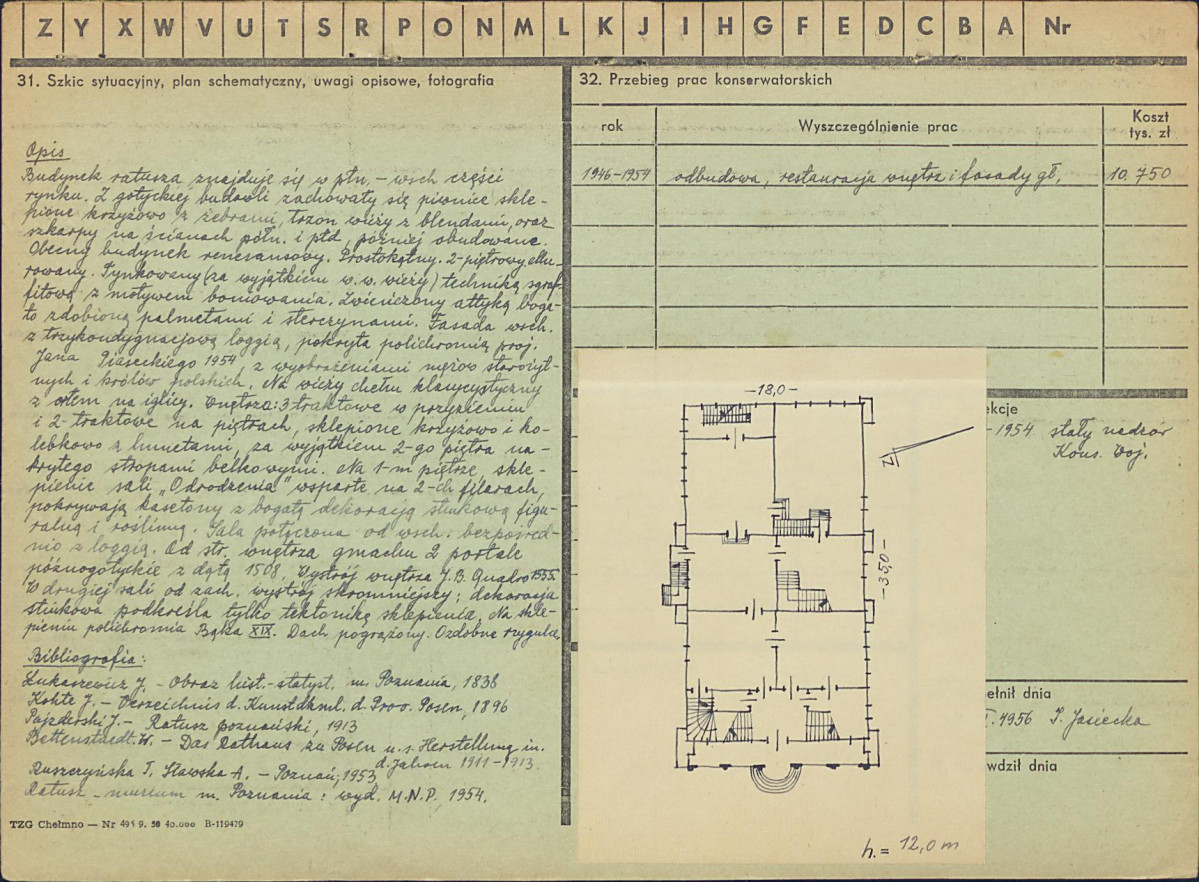 Z Y X W V U T S R P O N M L K J I H G F E D C B A Nr
31. Szkic sytuacyjny, plan schematyczny, uwagi opisowe, fotografia
Opis
Budynek ratusza znajduje się w płn. - wsch części
rynku. Z gotyckiej budowli zachowały się piwnice skle-
pione krzyżowo z żebrami, trzon wieży z blendami, oraz
szkarpy na ścianach półn. i płd, później obudowane.
Obecny budynek renesansowy. Prostokątny. 2-piętrowy, mu-
rowany. Tynkowany (za wyjątkiem w.w. wieży) techniką sgraf-
fitową z motywem boniowania. Zwieńczony attyką boga-
to zdobioną palmetami i sterczynami. Fasada wsch.
z trzykondygnacjową loggią, pokryta polichromią proj.
Jana Piaseckiego 1954, z wyobrażeniami mężów starożyt-
nych i królów polskich. Na wieży chełm klasycystyczny
z orłem na iglicy. Wnętrza: 3 traktowe w przyziemiu
i 2-traktowe na piętrach, sklepione krzyżowo i ko-
lebkowo z lunetami, za wyjątkiem 2-go piętra na-
krytego stropami belkowymi. Na 1-m piętrze, skle-
pienie sali „Odrodzenia" wsparte na 2-ch filarach,
pokrywają kasetony z bogatą dekoracją stiukową figu-
ralną i roślinną. Sala połączona od wsch. bezpośred-
nio z loggią. Od str. wnętrza gmachu 2 portale
późnogotyckie z datą 1508. Wystrój wnętrza J.B. Quadro 1555.
W drugiej sali od zach. wystrój skromniejszy; dekoracja
stiukowa podkreśla tylko tektonikę sklepienia. Na skle-
pieniu polichromia Bąka XIX. Dach pogrążony. Ozdobne rzygulce
Bibliografia:
Łukaszewicz J. - Obraz hist.-statyst. m. Poznania, 1838
Kohte J. - Verzeichnis d. Kunstdkml. d. Prov. Posen, 1896
Pajzderski J. - Ratusz poznański, 1913
Bettenstaedt. W. - Das Rathaus zu Posen u. s. Herstellung in.
d. Jahren 1911-1913.
Ruszczyńska T, Sławska A. - Poznań, 1953
Ratusz - muzeum m. Poznania : wyd. M.N.P. 1954.
TZG Chełmno — Nr 49 9. 50 40.000 B-119479
32. Przebieg prac konserwatorskich
rok Wyszczególnienie prac Koszt
tys. zł
1946-1954 odbudowa, restauracja wnętrz i fasady gł, 10.750
ekcje
- 1954 stały nadzór
Kons. Woj.
ełnił dnia
1956 J. Jasiecka
wdził dnia
-18,0-
N
-35,0-
h. = 12,0 m